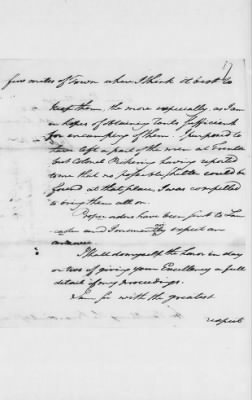 17
few miles of Town where I think it best to
keep them, the more especially as I am
in hopes of obtaining Tents sufficient
for encamping of them. I purposed to
have left a part of the men at Trenton
but Colonel having reported
to me that no possible shelter could be
found at that place, I was compelled
to bring them all on.
Proper orders have been sent to Lan
caster and I momently expect an
answer.
I shall do myself the honor in day
or two of giving your Excellency a full
detail of my proceedings.
I am Sir with the greatest
respect